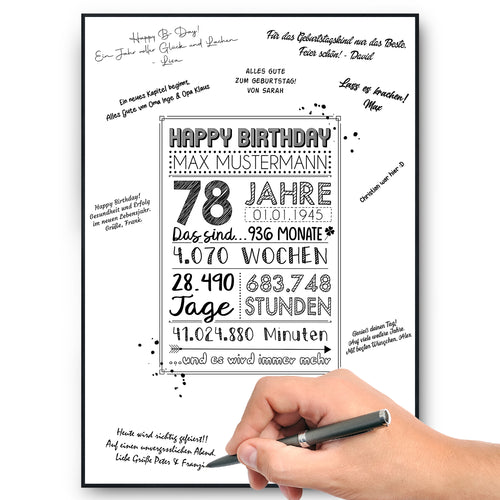 Happy B-Day!
Ein Jahr voller Glück und Lachen
- Lisa
Für das Geburtstagskind nur das Beste.
Feier schön! - David
ALLES GUTE
ZUM GEBURTSTAG!
VON SARAH
Ein neues Kapitel beginnt,
Alles Gute von Oma Inge & Opa Klaus
Lass es krachen!
Max
HAPPY BIRTHDAY
MAX MUSTERMANN
78 JAHRE
01.01.1945
Das sind... 936 MONATE
4.070 WOCHEN
28.490 Tage
683.748 STUNDEN
41.024.880 Minuten
...und es wird immer mehr
Happy Birthday!
Gesundheit und Erfolg
im neuen Lebensjahr.
Grüße, Frank.
Christian war hier :D
Genieß deinen Tag!
Auf viele weitere Jahre.
Mit besten Wünschen, Alex
Heute wird richtig gefeiert!!
Auf einen unvergesslichen Abend.
Liebe Grüße Peter & Franzi